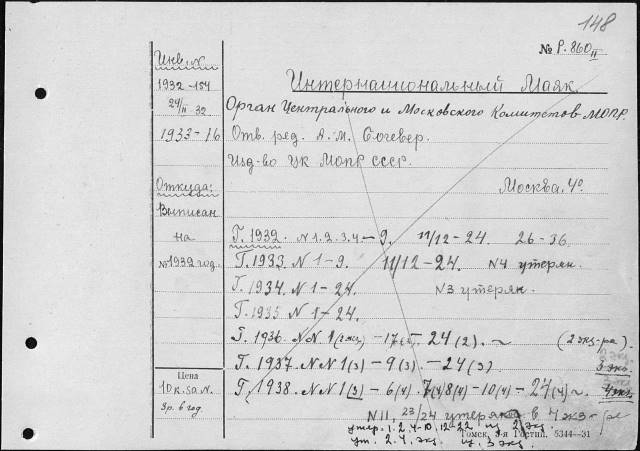 148
№ Р. 860 II
Инв. №
1932-154
24/II-32
1933-16
Интернациональный Маяк.
Орган Центрального и Московского Комитетов МОПР.
Отв. ред. А. М. Сочевер.
Изд-во ЦК Мопр СССР.
Москва. 4°
Откуда:
Выписан
на
№ 1932 год.
Г. 1932. N 1. 2. 3. 4 - 9. 11/12 - 24. 26-36.
Г. 1933. N 1-9. 11/12-24. N4 утерян.
Г. 1934. N 1-24. N3 утерян.
Г. 1935 N 1-24.
Г. 1936. N N 1 - 24 (2). ~ (2 экз-ра)
Г. 1937. N N 1(3) - 9(3). - 24(3) 3 экз.
Г. 1938. N N 1(3) - 6(4). 7(4) 8(4) - 10(4) - 24(4) ~ 4 экз.
Цена
10 к.
3р. в год
N 11, 23/24 в 4 экз-ре
утер. 1. 2. 4-10, 12-22 из 2 экз.
ут. 2. 4. экз. из 3 экз.
Томск, 3-я Гостип. 5344-31